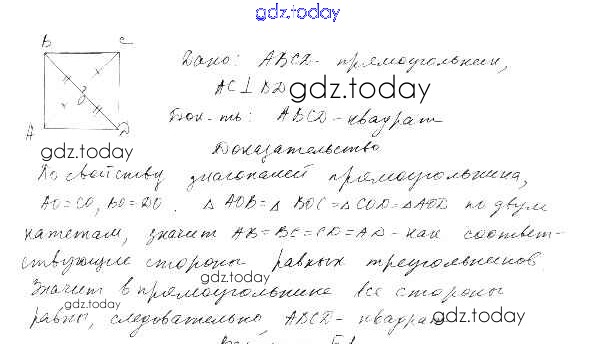 gdz.today
B C
Дано: ABCD - прямоугольник,
AC⊥BD
gdz.today
Док-ть: ABCD - квадрат
A D
gdz.today
Доказательство
По свойству диагоналей прямоугольника,
AO=CO, BO=DO. △AOB=△BOC=△COD=△AOD по двум
катетам, значит AB=BC=CD=AD - как соответ-
ствующие стороны равных треугольников
gdz.today
Значит в прямоугольнике все стороны
gdz.today
равны, следовательно, ABCD - квадрат
gdz.today